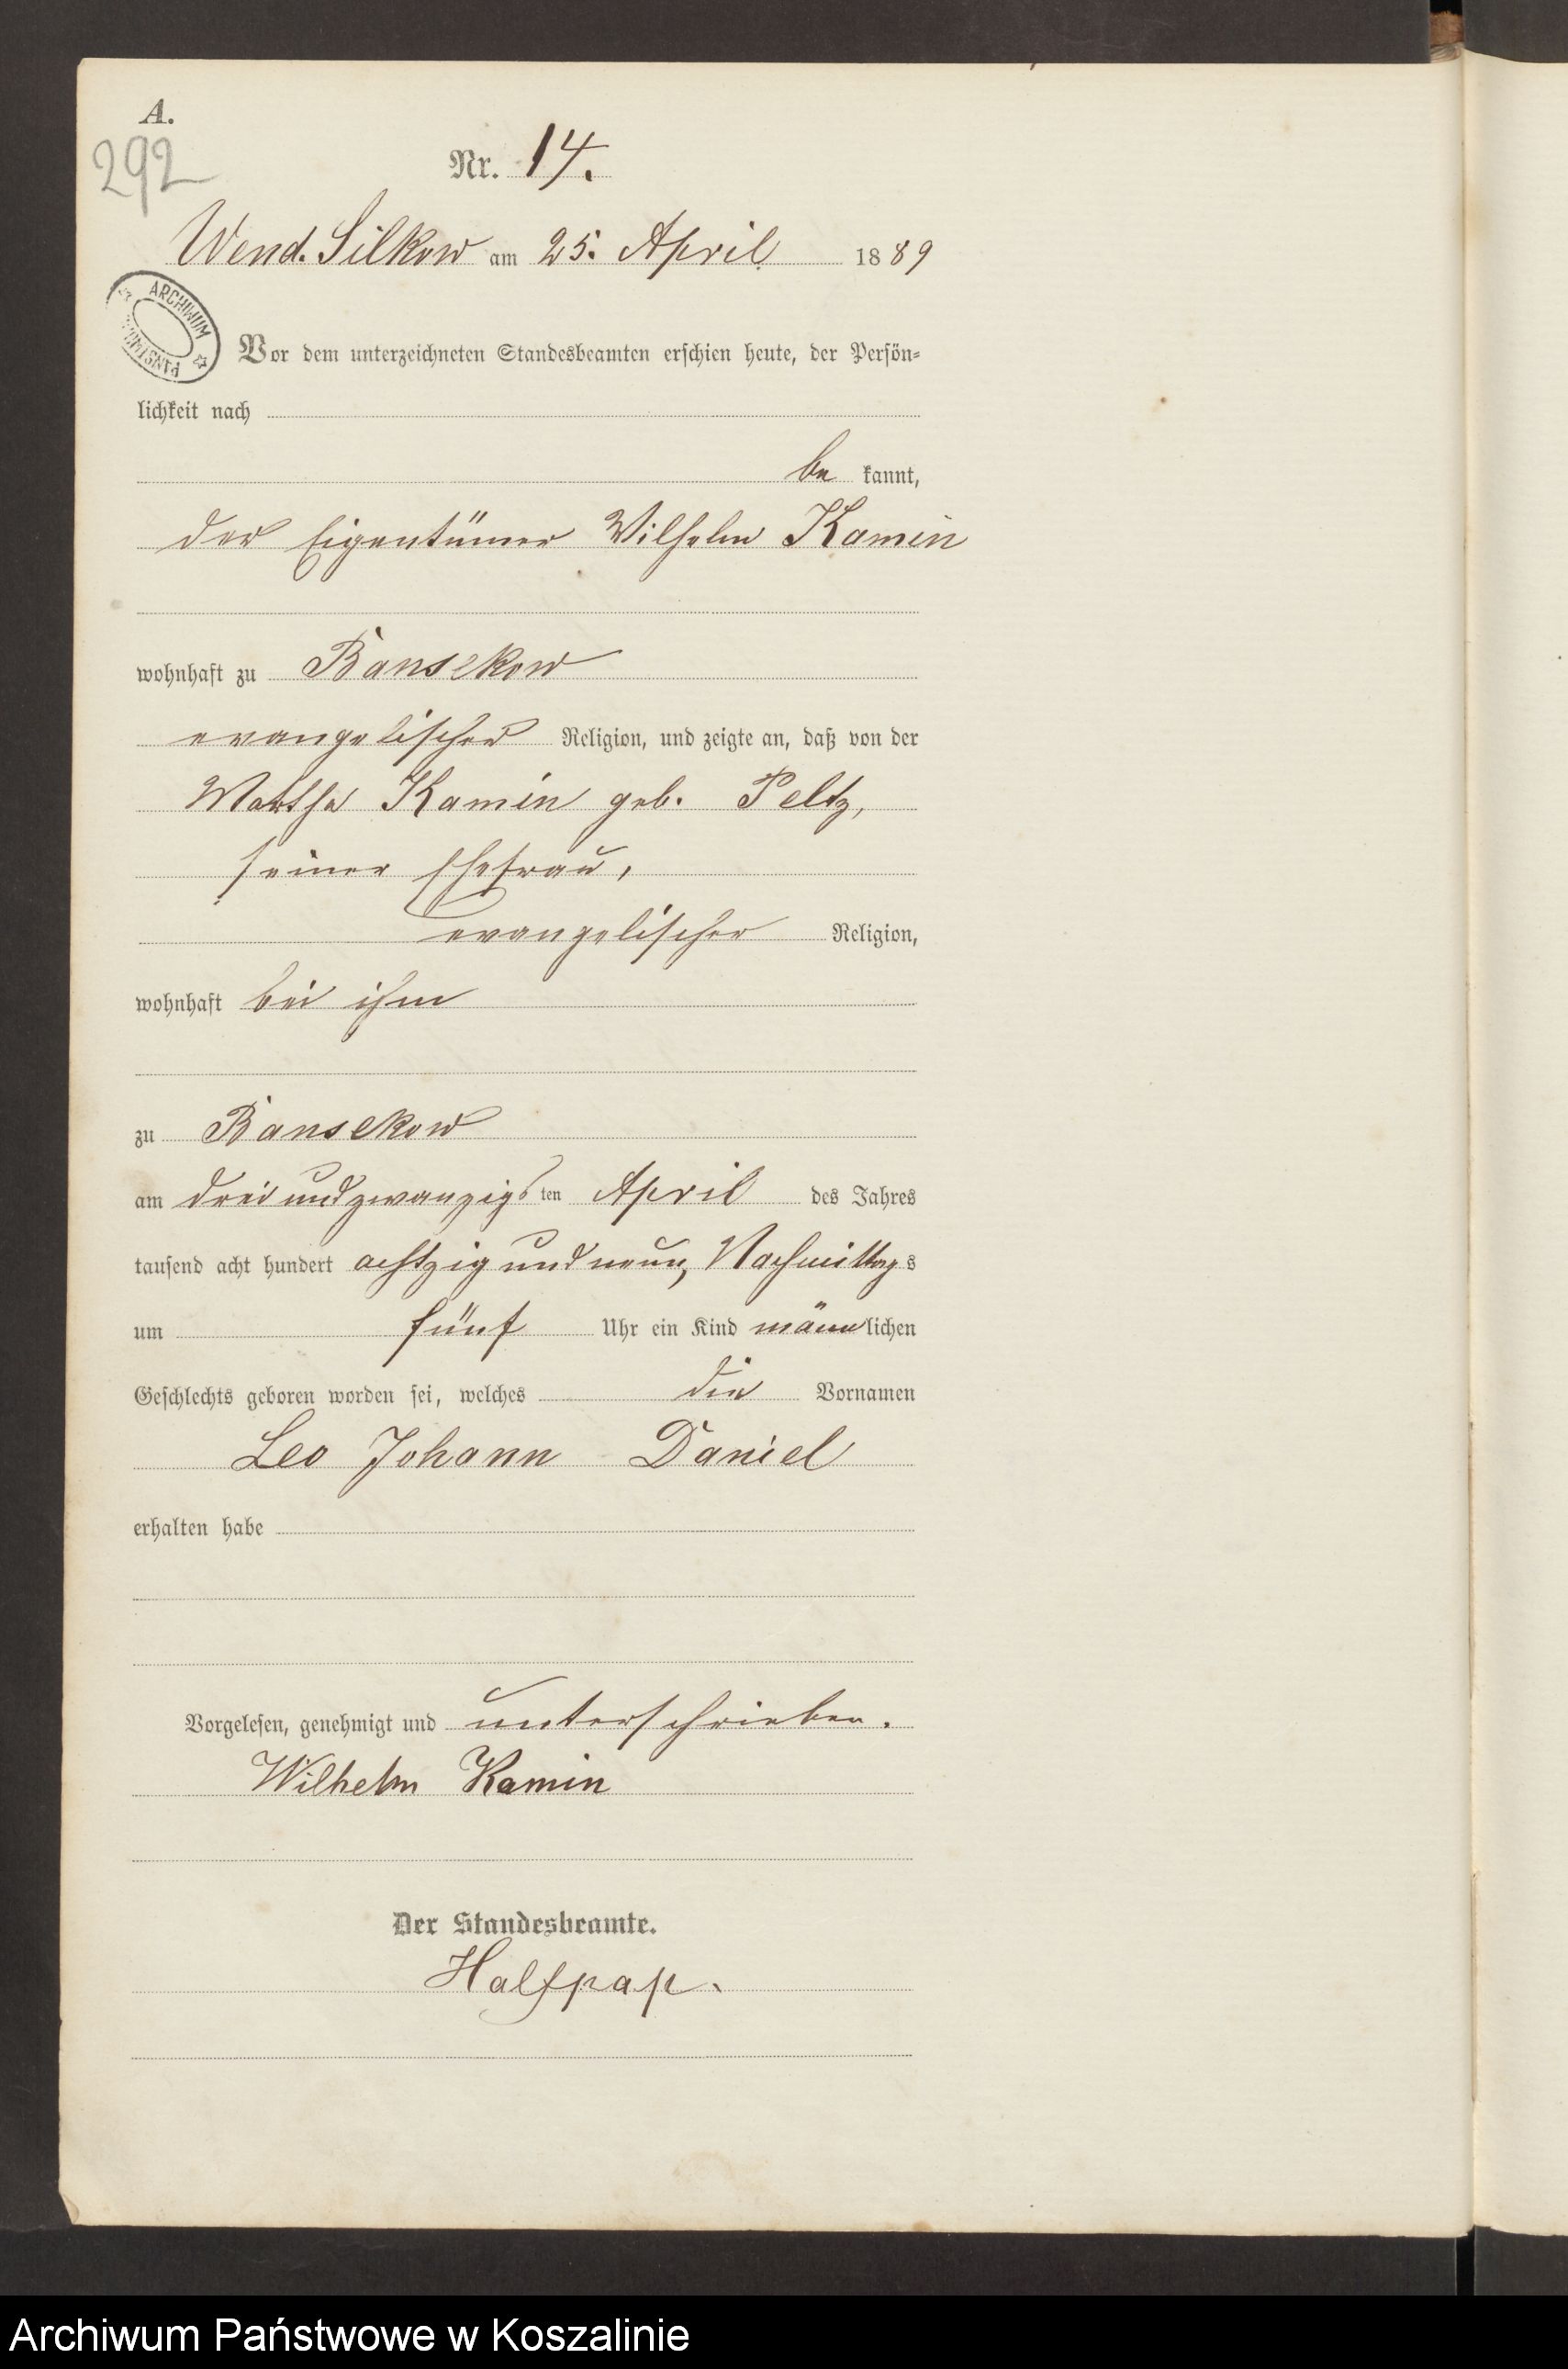 A.
292
Nr. 14.
Wend. Silkow am 25. April 1889
ARCHIWUM
Vor dem unterzeichneten Standesbeamten erschien heute, der Persön-
lichkeit nach
be kannt,
der Eigentümer Wilhelm Kamin
wohnhaft zu Bansekow
evangelischer Religion, und zeigte an, daß von der
Martha Kamin geb. Peltz,
seiner Ehefrau,
evangelischer Religion,
wohnhaft bei ihm
zu Bansekow
am drei und zwanzigsten April des Jahres
tausend acht hundert achtzig und neun, Nachmittags
um fünf Uhr ein Kind männlichen
Geschlechts geboren worden sei, welches die Vornamen
Leo Johann Daniel
erhalten habe
Vorgelesen, genehmigt und unterschrieben.
Wilhelm Kamin
Der Standesbeamte.
Halfpap.
Archiwum Państwowe w Koszalinie